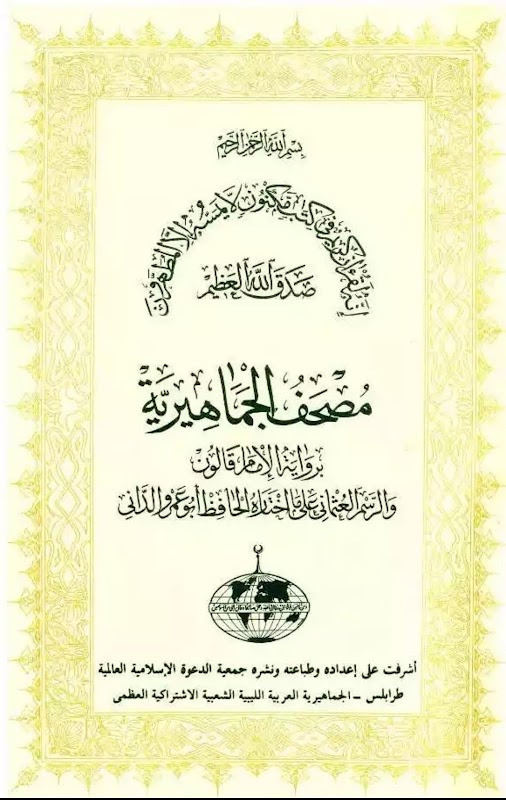 بِسْمِ اللَّهِ الرَّحْمَٰنِ الرَّحِيمِ
إِنَّهُ لَقُرْآنٌ كَرِيمٌ فِي كِتَابٍ مَكْنُونٍ لَا يَمَسُّهُ إِلَّا الْمُطَهَّرُونَ
صَدَقَ اللَّهُ الْعَظِيمُ
مُصْحَفُ الْجَمَاهِيرِيَّةِ
بِرِوَايَةِ الْإِمَامِ قَالُونَ
وَالرَّسْمِ الْعُثْمَانِي عَلَى مَا اخْتَارَهُ الْحَافِظُ أَبُو عَمْرٍو الدَّانِي
أشرفت على إعداده وطباعته ونشره جمعية الدعوة الإسلامية العالمية
طرابلس – الجماهيرية العربية الليبية الشعبية الاشتراكية العظمى